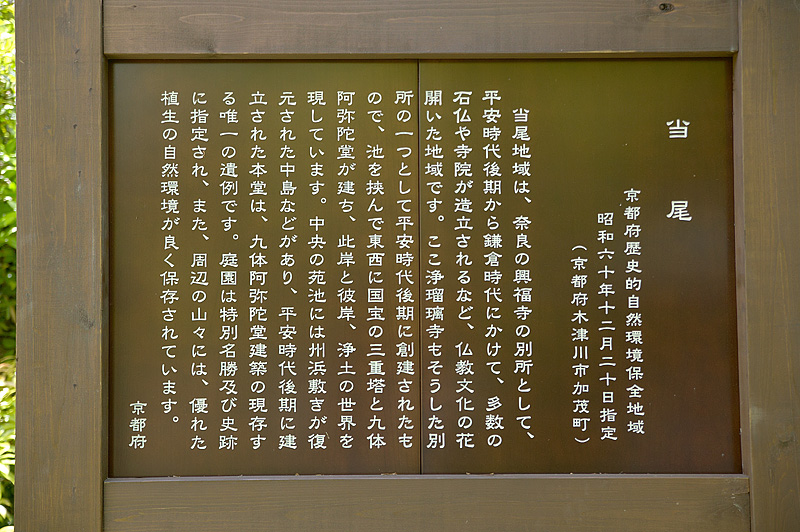 当尾
京都府歴史的自然環境保全地域
昭和六十年十二月二十日指定
（京都府木津川市加茂町）
当尾地域は、奈良の興福寺の別所として、
平安時代後期から鎌倉時代にかけて、多数の
石仏や寺院が造立されるなど、仏教文化の花
開いた地域です。ここ浄瑠璃寺もそうした別
所の一つとして平安時代後期に創建されたも
ので、池を挟んで東西に国宝の三重塔と九体
阿弥陀堂が建ち、此岸と彼岸、浄土の世界を
現しています。中央の苑池には州浜敷きが復
元された中島などがあり、平安時代後期に建
立された本堂は、九体阿弥陀堂建築の現存す
る唯一の遺例です。庭園は特別名勝及び史跡
に指定され、また、周辺の山々には、優れた
植生の自然環境が良く保存されています。
京都府